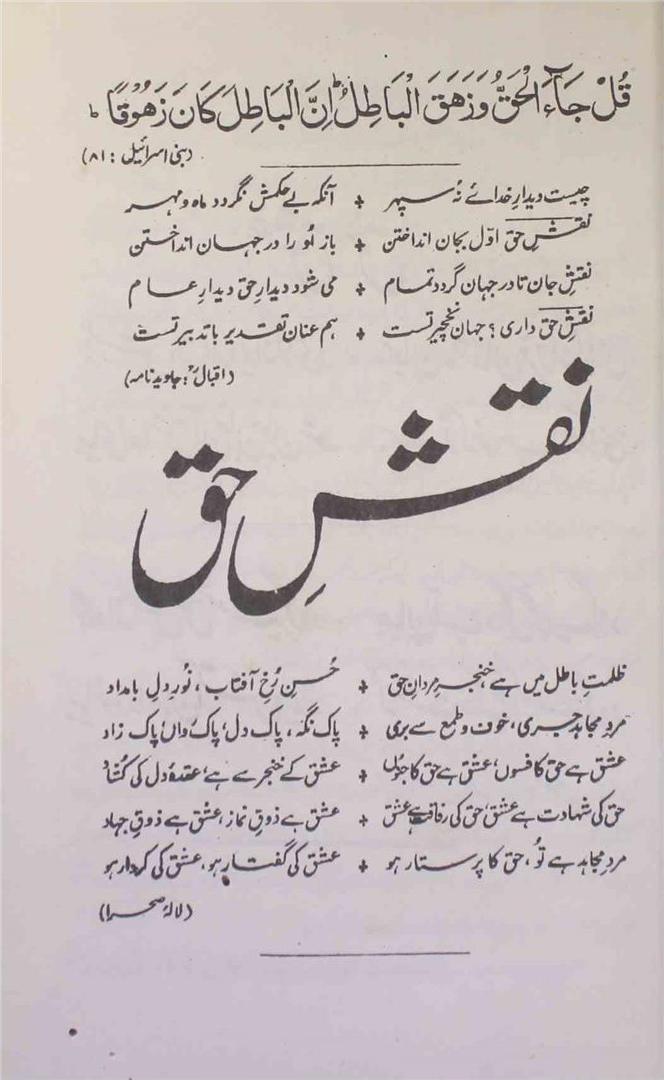 قُلْ جَآءَ الْحَقُّ وَزَهَقَ الْبَاطِلُ ؕ اِنَّ الْبَاطِلَ كَانَ زَهُوْقًا ۝
(بنی اسرائیل : ۸۱)
چیست دیدارِ خدائے نُہ سپہر ٭ آنکہ بے حکمش نگردد ماہ و مہر
نقشِ حق اوّل بجان انداختن ٭ باز اُو را در جہان انداختن
نقشِ جان تا در جہان گردد تمام ٭ می شود دیدارِ حق دیدارِ عام
نقشِ حق داری ؟ جہان نخچیر تست ٭ ہم عنان تقدیر با تدبیر تست
(اقبالؒ : جاوید نامہ)
نقشِ حق
ظلمتِ باطل میں ہے خنجرِ مردانِ حق ٭ حُسنِ رُخِ آفتاب ، نُورِ دلِ بامداد
مردِ مجاہد جری ، خوف و طمع سے بری ٭ پاک نگہ ، پاک دل ، پاک رواں ، پاک زاد
عشق ہے حق کا فسوں ، عشق ہے حق کا جنوں ٭ عشق کے خنجر سے ہے ، عقدۂ دل کی کُشاد
حق کی شہادت ہے عشق ، حق کی رفاقت ہے عشق ٭ عشق ہے ذوقِ نماز ، عشق ہے ذوقِ جہاد
مردِ مجاہد ہے تُو ، حق کا پرستار ہو ٭ عشق کی گفتار ہو ، عشق کی کردار ہو
(لالۂ صحرا)